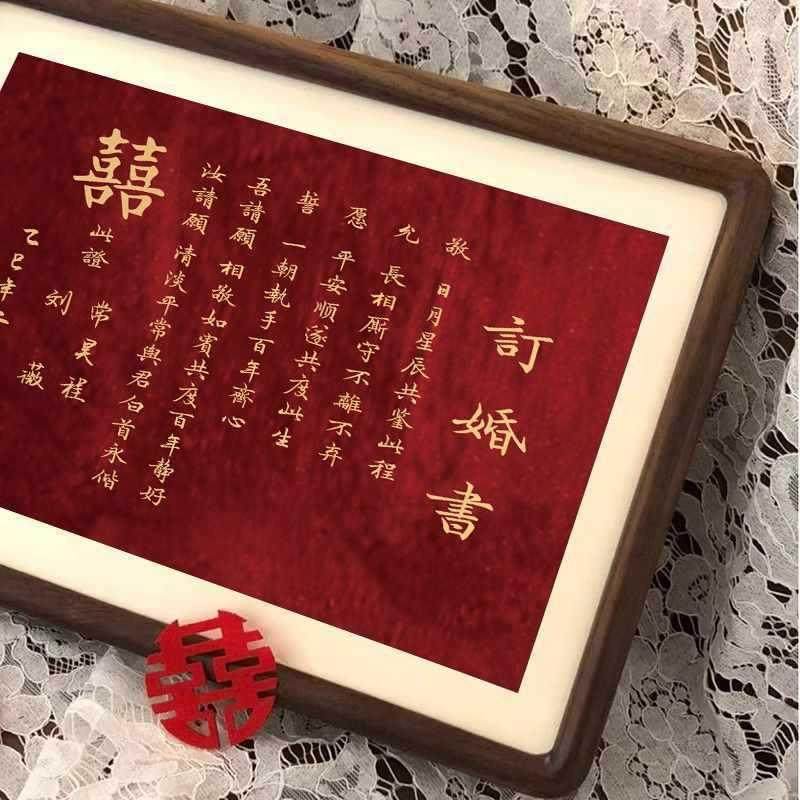 訂婚書
敬 日月星辰共鉴此程
允 長相廝守不離不弃
愿 平安顺遂共度此生
誓 一朝執手百年齊心
吾請願 相敬如賓共度百年静好
汝請願 清淡平常與君白首永偕
囍
此證 常昊程
刘薇
乙巳年二
囍